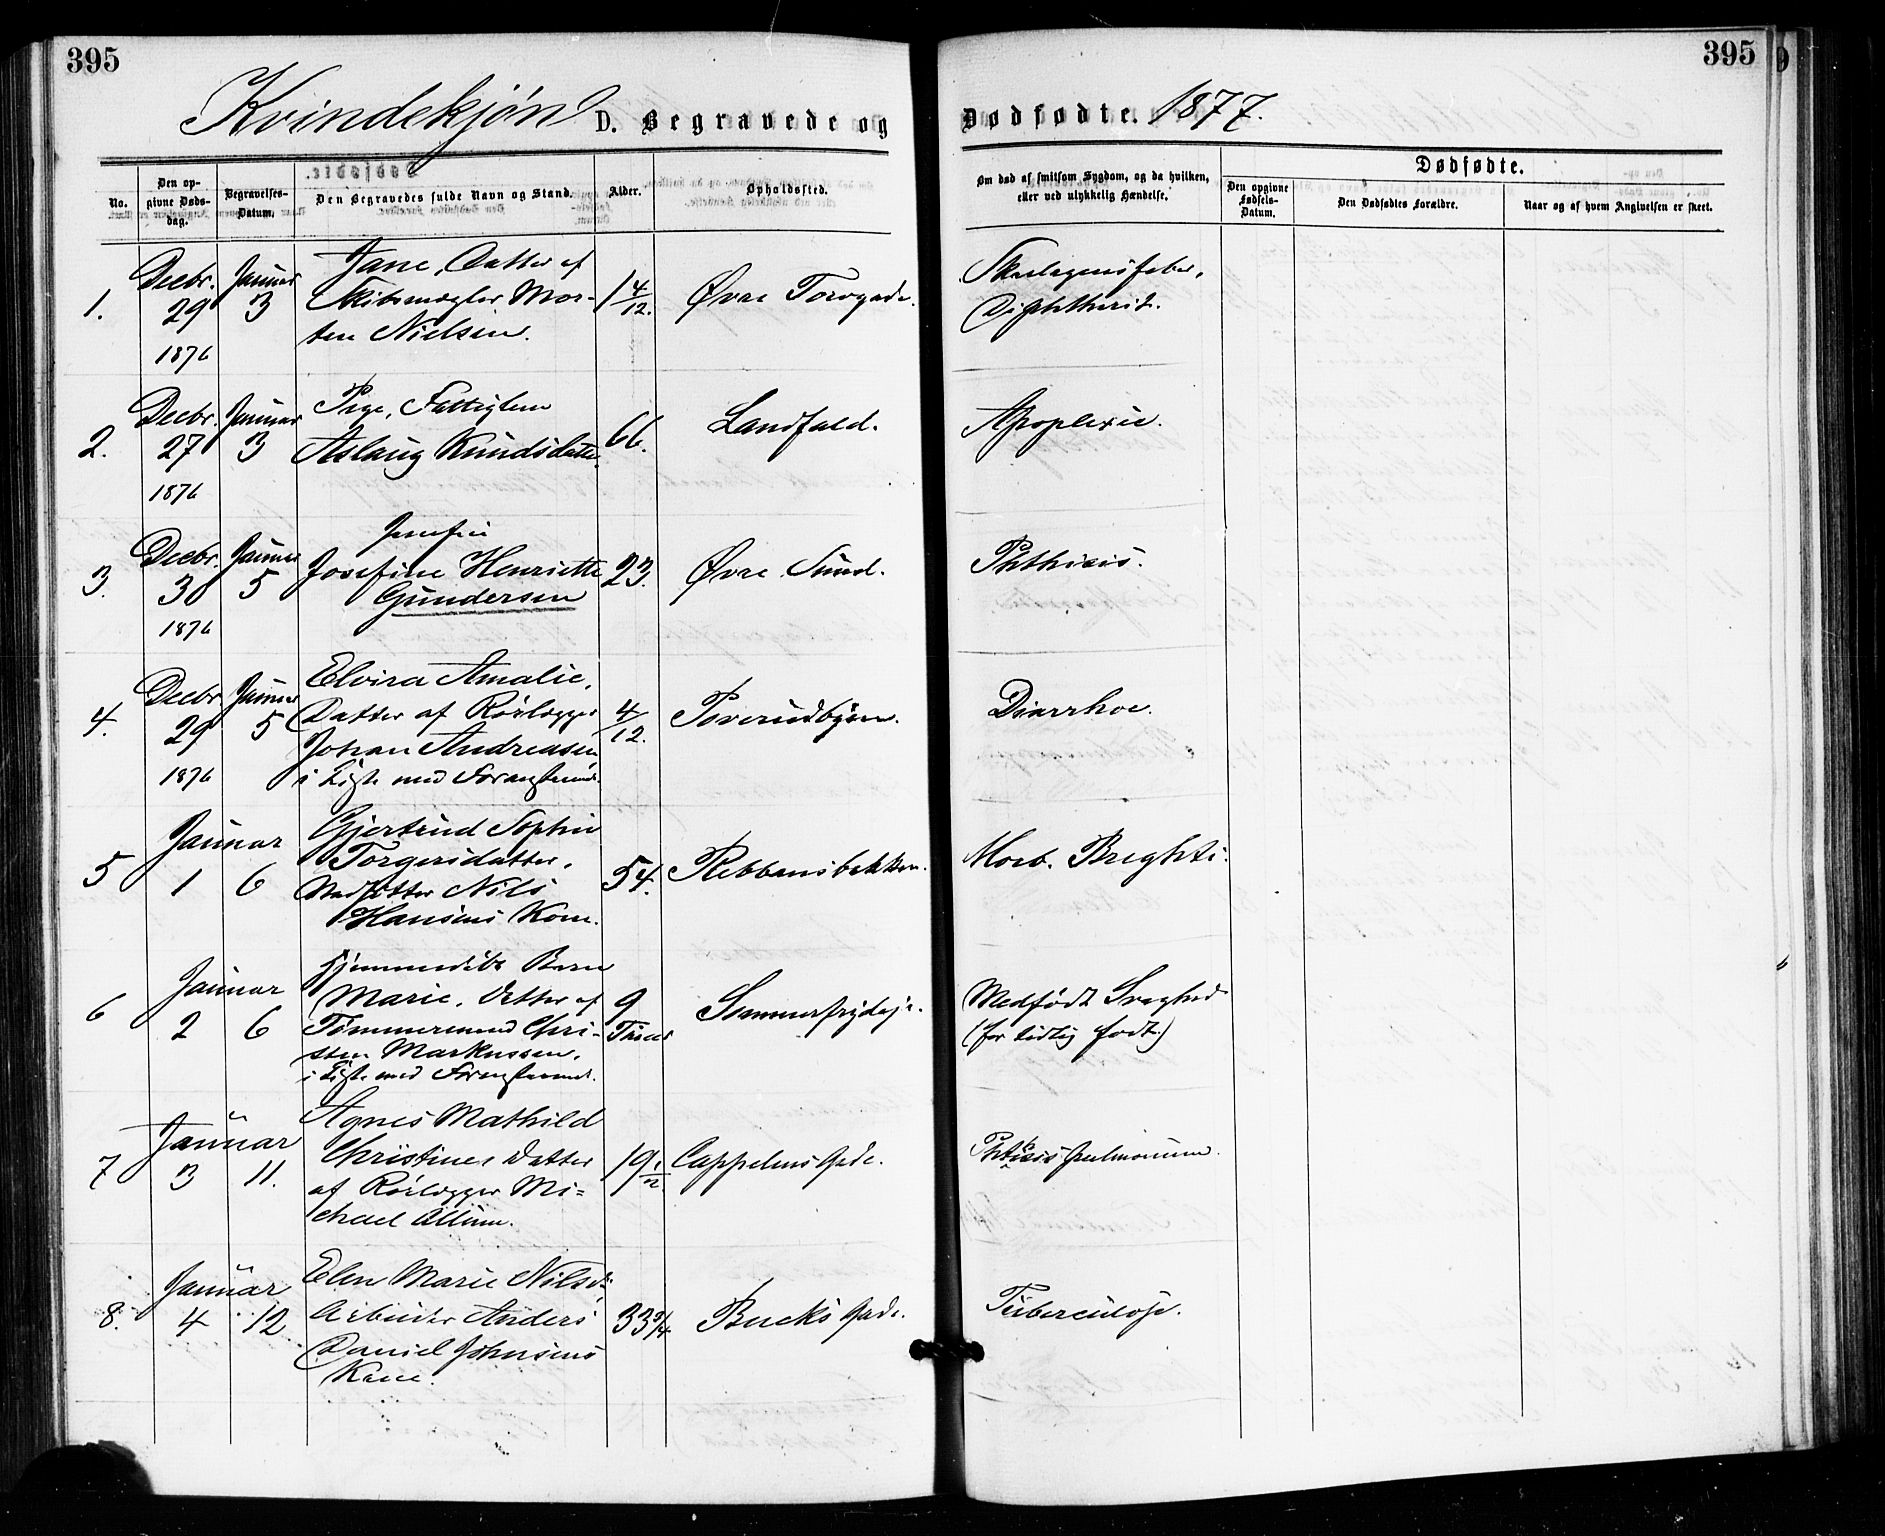 395
395
Kvindekjøn D. Begravede og Dødfødte. 1877.
No.
Den opgivne Dødsdag.
Begravelses-Datum.
Den Begravedes fulde Navn og Stand.
Alder.
Opholdssted.
Om død af smitsom Sygdom, og da hvilken,
eller ved ulykkelig Hændelse.
Dødfødte.
Den opgivne Fødsels-Datum.
Den Dødfødtes Forældre.
Naar og af hvem Angivelsen er skeet.
1.
Decbr. 29 1876
Januar 3
Jane, Datter af
Skibsmægler Mor-
ten Nielsen.
1 4/12.
Øvre Torvgade.
Skarlagensfeber,
Diphtherit.
2.
Decbr. 27 1876
Januar 3
Pige, Fattiglem
Aslaug Knudsdatter.
66.
Landfald.
Apoplexie.
3.
Decbr. 30 1876
Januar 5
Josefine Henriette
Gundersen
23.
Øvre Sund.
Phthisis.
4.
Decbr. 29 1876
Januar 5
Elvira Amalie,
Datter af Rørlægger
Johan Andreasen
i Ligh. med
4/12.
Toverudbyen.
Diarrhoe.
5
Januar
1 6
Gjertrud Sophie
Torgersdatter,
Nils
Hansens Kone.
54.
Rebbansbakken.
Morb. Brighti.
6
Januar
2 6
Hjemmedøbt Barn
Marie, Datter af
Tømmermand Chri-
sten Markussen.
i Ligh. med
9
Timer
Sommerfrydeje.
Medfødt Svaghed
(for tidlig født.)
7
Januar
3 11.
Agnes Mathild
Christine, Datter
af Rørlægger Mi-
chael Allum.
19 1/12.
Cappelens Gade.
Phtisis pulmonum.
8.
Januar
4 12
Elen Marie Nilsd.
Arbeider Anders
Daniel Johnsens
Kone.
33 3/4
Bucks Gade.
Tuberculose.